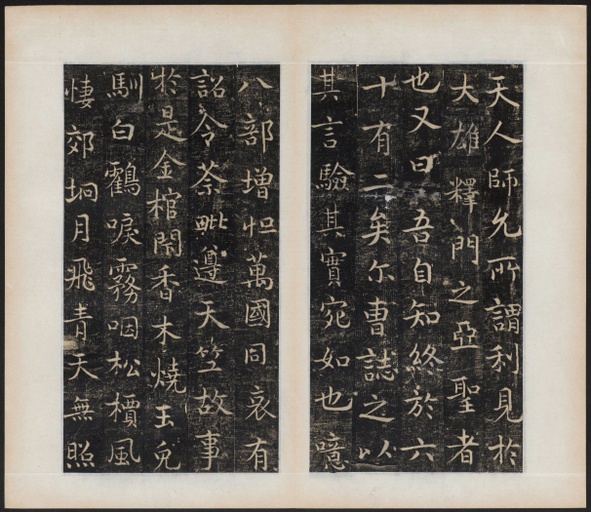 天人師允所謂利見於
大雄釋門之亞聖者
也又曰吾自知終於六
十有二矣尒曹誌之以
其言驗其實宛如也噫
八部增怛萬國同哀有
詔令荼毗遵天竺故事
於是金棺閇香木燒玉兔
馴白鸖唳霧咽松檟風
悽郊坰月飛青天無照